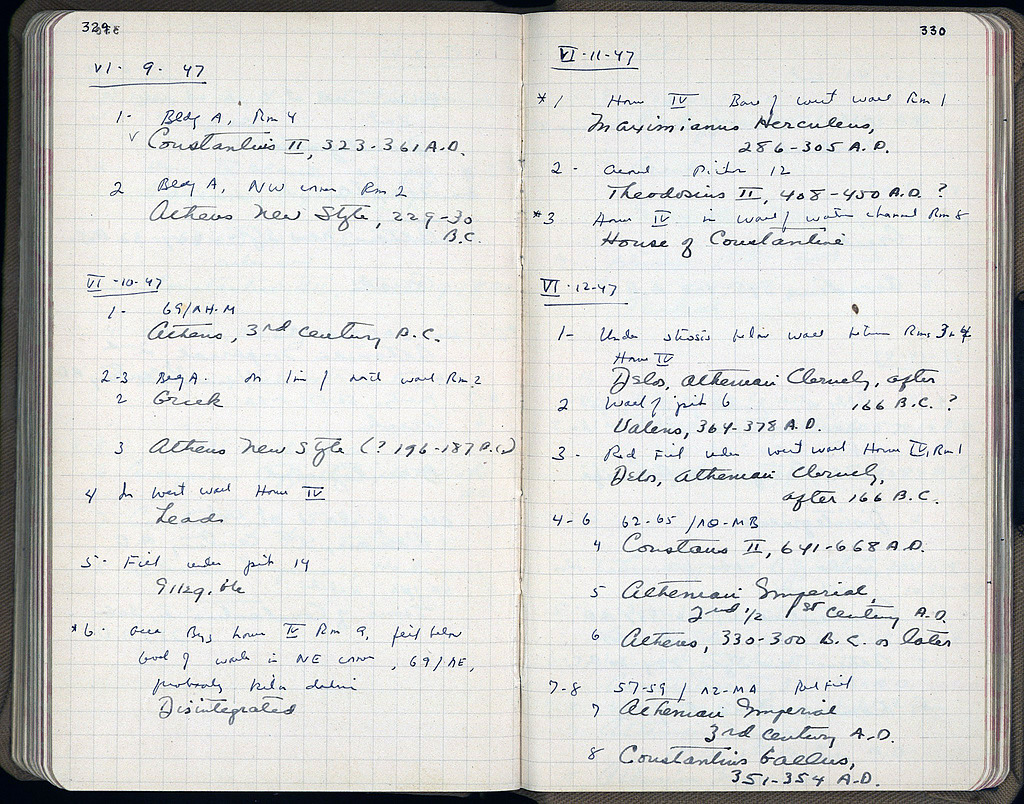 329
VI · 9 · 47
1- Bldg A, Rm 4
✓ Constantius II, 323-361 A.D.
2 Bldg A, NW corner Rm 2
Athens New Style, 229-30
B.C.
VI -10-47
1- 69/ΛΗ-Μ
Athens, 3rd century B.C.
2-3 Bldg A. on line of north wall Rm 2
2 Greek
3 Athens New Style (? 196-187 B.C.)
4 In west wall House IV
Leads
5- Fill under pit 14
Illegible
*6- House IV Rm 9, fill below
level of walls in NE corner, 69/ΛΕ,
probably
Disintegrated
330
VI -11-47
*1 House IV Base of west wall Rm 1
Maximianus Herculeus,
286-305 A.D.
2- 12
Theodosius II, 408-450 A.D. ?
*3 House IV in wall of water channel Rm 8
House of Constantine
VI -12-47
1- Under stosis below wall between Rms 3 + 4
House IV
Delos, Athenian Cleruchy, after
166 B.C. ?
2 Wall of pit 6
Valens, 364-378 A.D.
3- Red Fill under west wall House IV, Rm 1
Delos, Athenian Cleruchy,
after 166 B.C.
4-6 62-65 /ΛΟ-ΜΒ
4 Constans II, 641-668 A.D.
5 Athenian Imperial,
2nd 1/2 1st century A.D.
6 Athens, 330-300 B.C. or later
7-8 57-59 / ΛΖ-ΜΑ Red Fill
7 Athenian Imperial
3rd century A.D.
8 Constantius Gallus,
351-354 A.D.